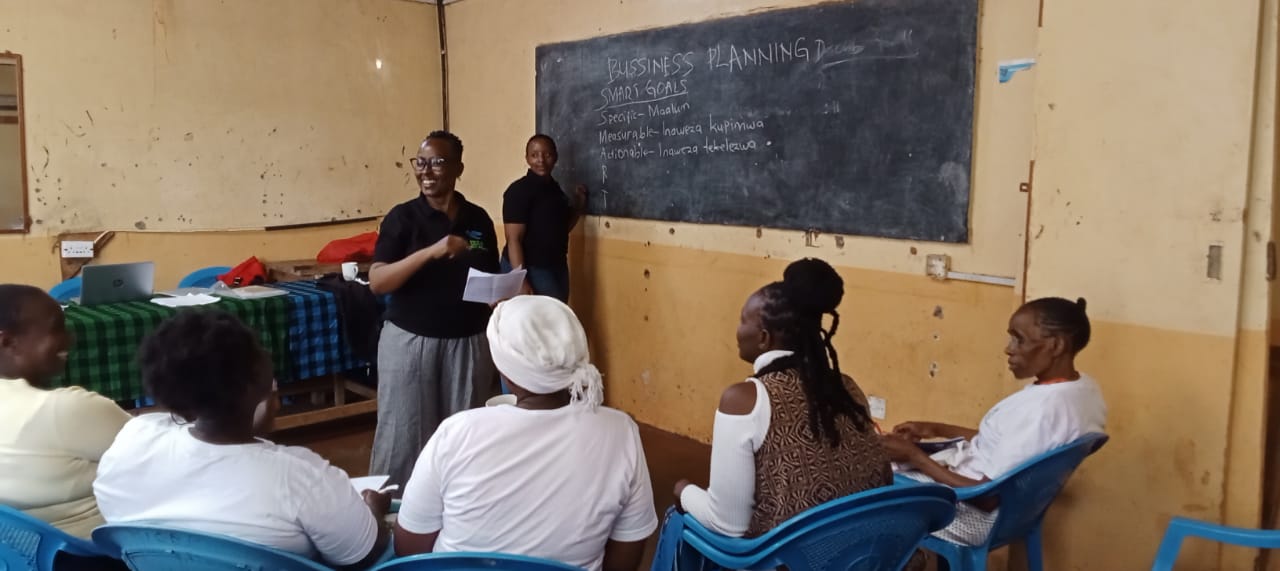 BUSSINESS PLANNING
SMART GOALS
Specific - Maalum
Measurable - Inaweza kupimwa
Actionable - Inaweza tekelezwa
R
T